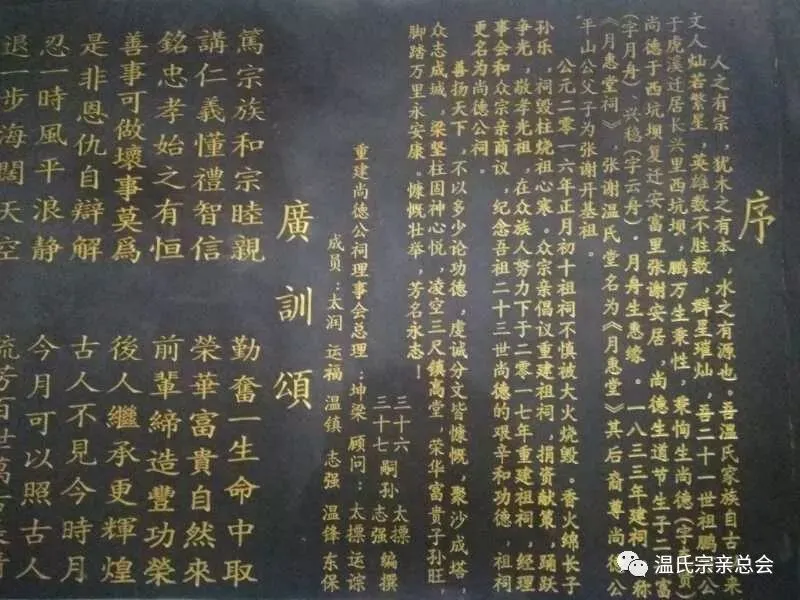 序
人之有宗，犹木之有本，水之有源也。喜温氏家族自古以来
文人灿若繁星，英雄数不胜数，群星璀灿，吾二十一世祖鹏万公
于虎溪迁居长兴里西坑坝，鹏万生秉性，秉恂生尚德（字 贵）
尚德于西坑坝复迁安富里张谢安居，尚德生道节生子二，富
（字月舟）、兴稳（字云舟）。月舟生惠缘。一八三三年建祠，称
《月惠堂祠》，张谢温氏堂名为《月惠堂》其后裔尊尚德公
平山公父子为张谢开基祖。
公元二零一六年正月初十祖祠不慎被大火烧毁。香火绵长子
孙乐，祠毁柱烧祖心寒。众宗亲倡议重建祖祠，捐资献策，踊跃
争光，敬孝光祖，在众族人努力下于二零一七年重建祖祠，经理
事会和众宗亲商议，纪念吾祖二十三世尚德的艰辛和功德，祖祠
更名为尚德公祠。
善扬天下，不以多少论功德，虔诚分文皆慷慨，聚沙成塔，
众志成城，梁坚柱固神心悦，凌空三尺镇高堂，荣华富贵子孙旺，
脚踏万里永安康。慷慨壮举，芳名永志！
三十六 嗣孙 太摽 编撰
三十七 志强
重建尚德公祠理事会总理：坤梁 顾问：太摽 运谅
成员：太润 运福 温镇 志强 温锋 东保
廣訓頌
篤宗族和宗睦親 勤奮一生命中取
講仁義懂禮智信 榮華富貴自然來
銘忠孝始之有恒 前輩締造豐功榮
善事可做壞事莫為 後人繼承更輝煌
是非恩仇自辯解 古人不見今時月
忍一時風平浪静 今月可以照古人
退一步海闊天空 流芳百世萬古
温氏宗亲总会